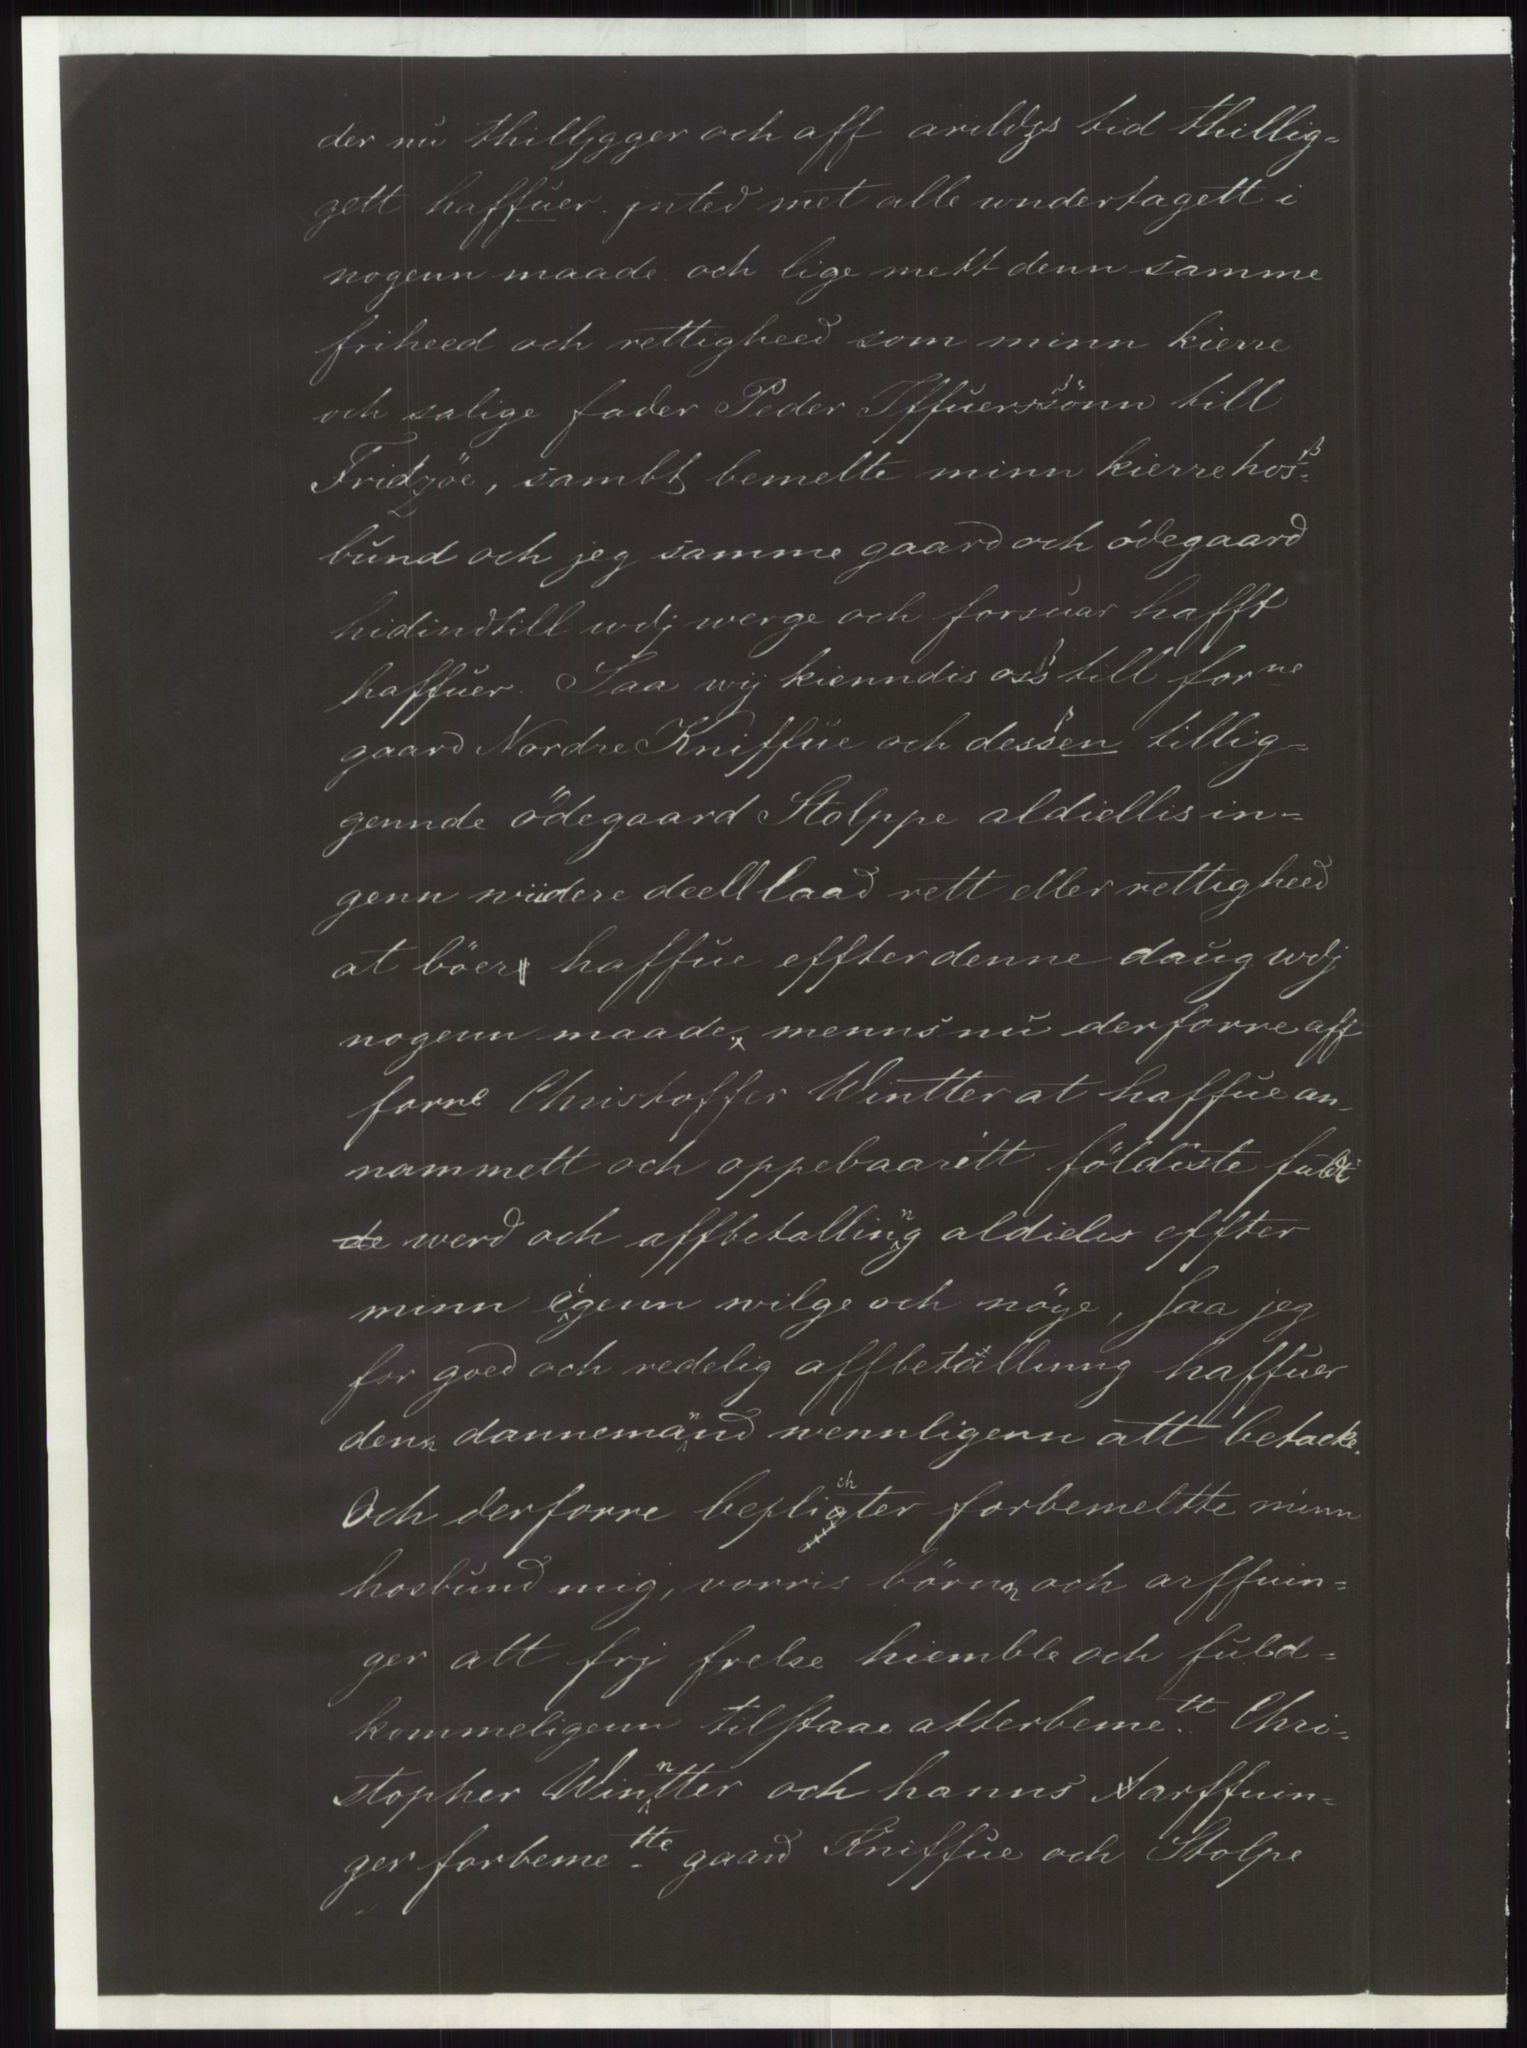 der nu thilljgger och aff arildzs tid thillig=
gett haffuer. jnted met alle wndertagett i
nogenn maade och lige mett denn samme
friheed och rettigheed som minn kierre
och salige fader Peder Iffuerssönn till
Fridzöe, sambt bemelte minn kierre hos=
bund och jeg samme gaard och ödegaard
hidindtill wdj werge och forsuar hafft
haffuer. Saa wij kienndis oss till forne
gaard Nordre Kniffue och dessen tillig=
gennde ödegaard Stolppe aldiellis in=
genn wiidere deell laad rett eller rettigheed
at böer haffue effter denne daug wdj
nogenn maade, menns nu derforre aff
forne Christoffer Wintter at haffue an=
nammett och oppebaaritt földiste fuldt
de werd och affbetallinng aldieles effter
minn eigenn wilge och nöye, Saa jeg
for goed och redelig affbetallinng haffuer
denn dannemannd wennligenn att betacke.
Och derforre beplichter forbemeltte minn
hosbund mig, vorris börnn och arffuin=
ger att frj frelse hiemble och fuld=
kommeligenn tilstaae atterbeme tt Chri=
stopher Winntter och hanns Aarffuin=
ger forbeme tte gaard Kniffue och Stolpe